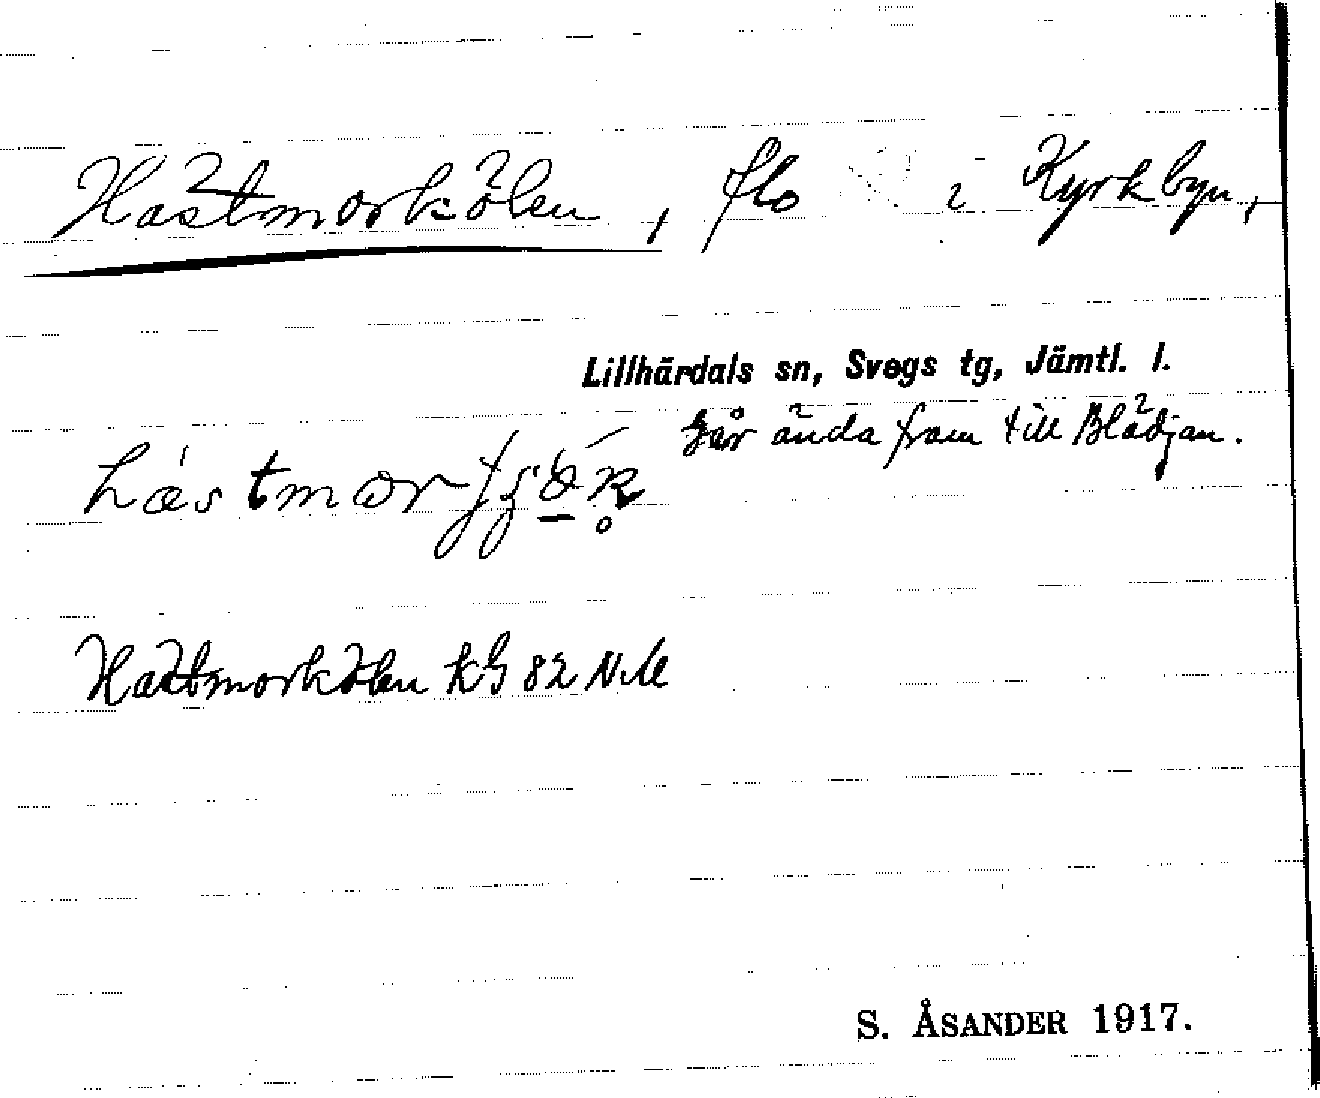 Hästmorkölen, flo i Kyrkbyn,
Lillhärdals sn, Svegs tg, Jämtl. l.
går ända fram till Blädjan.
Hästmorkölen kG 82 N.M
S. ÅSANDER 1917.